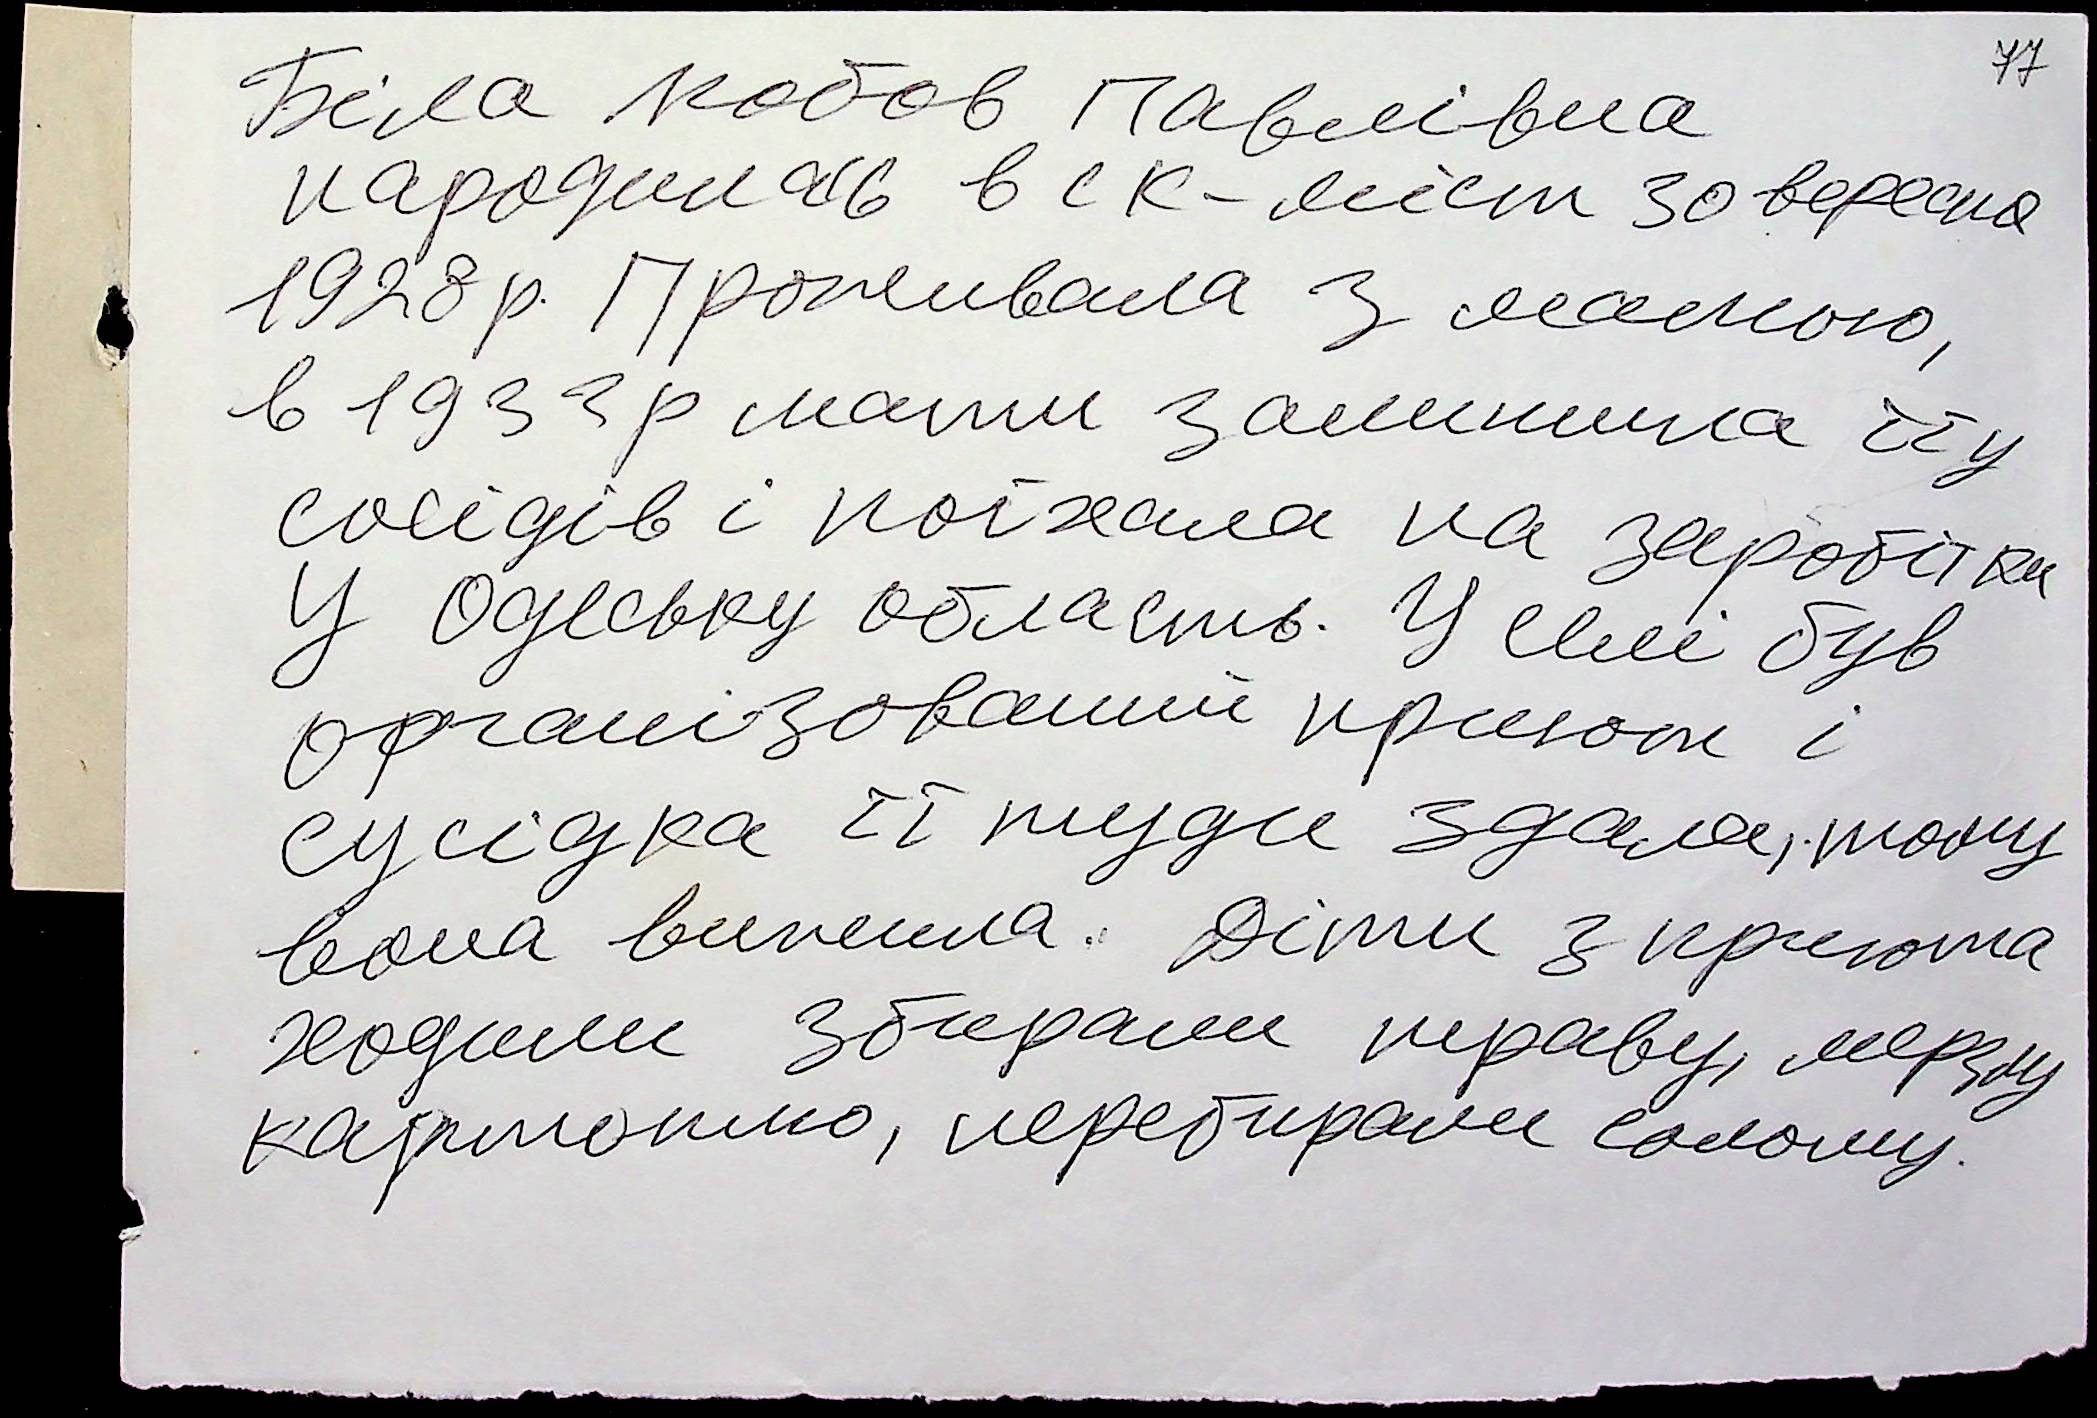 77
Біла Любов Павлівна
народилась в с К-міст 30 вересня
1928р. Проживала з мамою,
в 1933р мати залишила її у
сосідів і поїхала на заробітки
У Одеську область. У селі був
організований приют і
сусідка її туди здала, тому
вона вижила. Діти з приюта
ходили збирали траву, мерзлу
картоплю, перебирали солому.